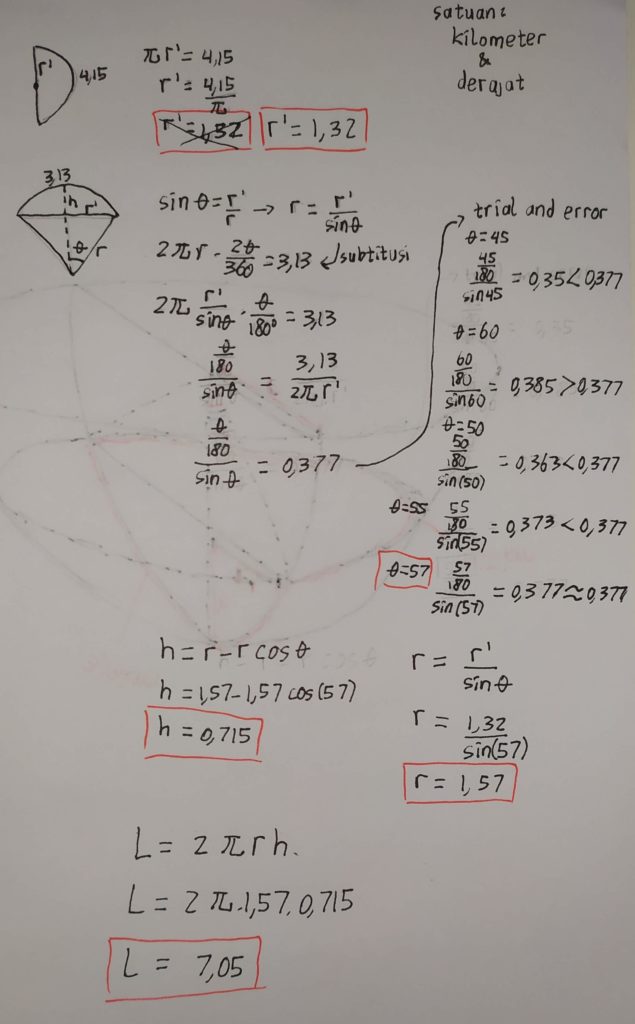 satuan:
kilometer
&
derajat
r'
4,15
πr' = 4,15
r' = 4,15/π
r' = 1,32
r' = 1,32
3,13
h
r'
θ
r
sin θ = r'/r → r = r'/sin θ
2πr · 2θ/360 = 3,13 ↙ subtitusi
2π r'/sin θ · θ/180° = 3,13
(θ/180)/sin θ = 3,13/(2πr')
(θ/180)/sin θ = 0,377
trial and error
θ = 45
(45/180)/sin 45 = 0,35 < 0,377
θ = 60
(60/180)/sin 60 = 0,385 > 0,377
θ = 50
(50/180)/sin(50) = 0,363 < 0,377
θ = 55 (55/180)/sin(55) = 0,373 < 0,377
θ = 57 (57/180)/sin(57) = 0,377 ≈ 0,377
h = r - r cos θ
h = 1,57 - 1,57 cos(57)
h = 0,715
r = r'/sin θ
r = 1,32/sin(57)
r = 1,57
L = 2πrh.
L = 2π.1,57.0,715
L = 7,05